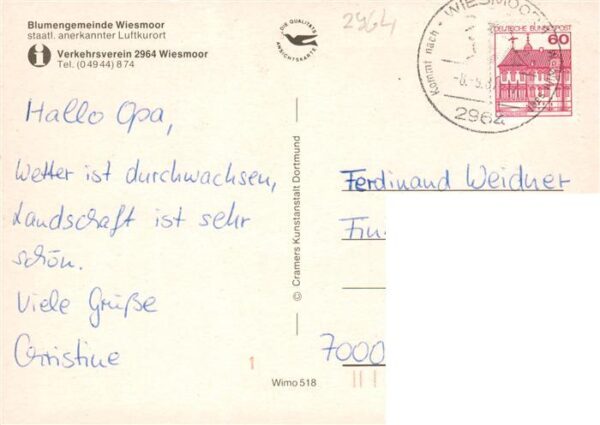 Blumengemeinde Wiesmoor
staatl. anerkannter Luftkurort
i Verkehrsverein 2964 Wiesmoor
Tel. (0 49 44) 8 74
DIE QUALITÄTS
ANSICHTSKARTE
2964
Kommt nach · WIESMOOR
2964
DEUTSCHE BUNDESPOST
60
Hallo Opa,
Wetter ist durchwachsen,
Landschaft ist sehr
schön.
Viele Grüße
Christine
© Cramers Kunstanstalt Dortmund
Ferdinand Weidner
7000
1
Wimo 518